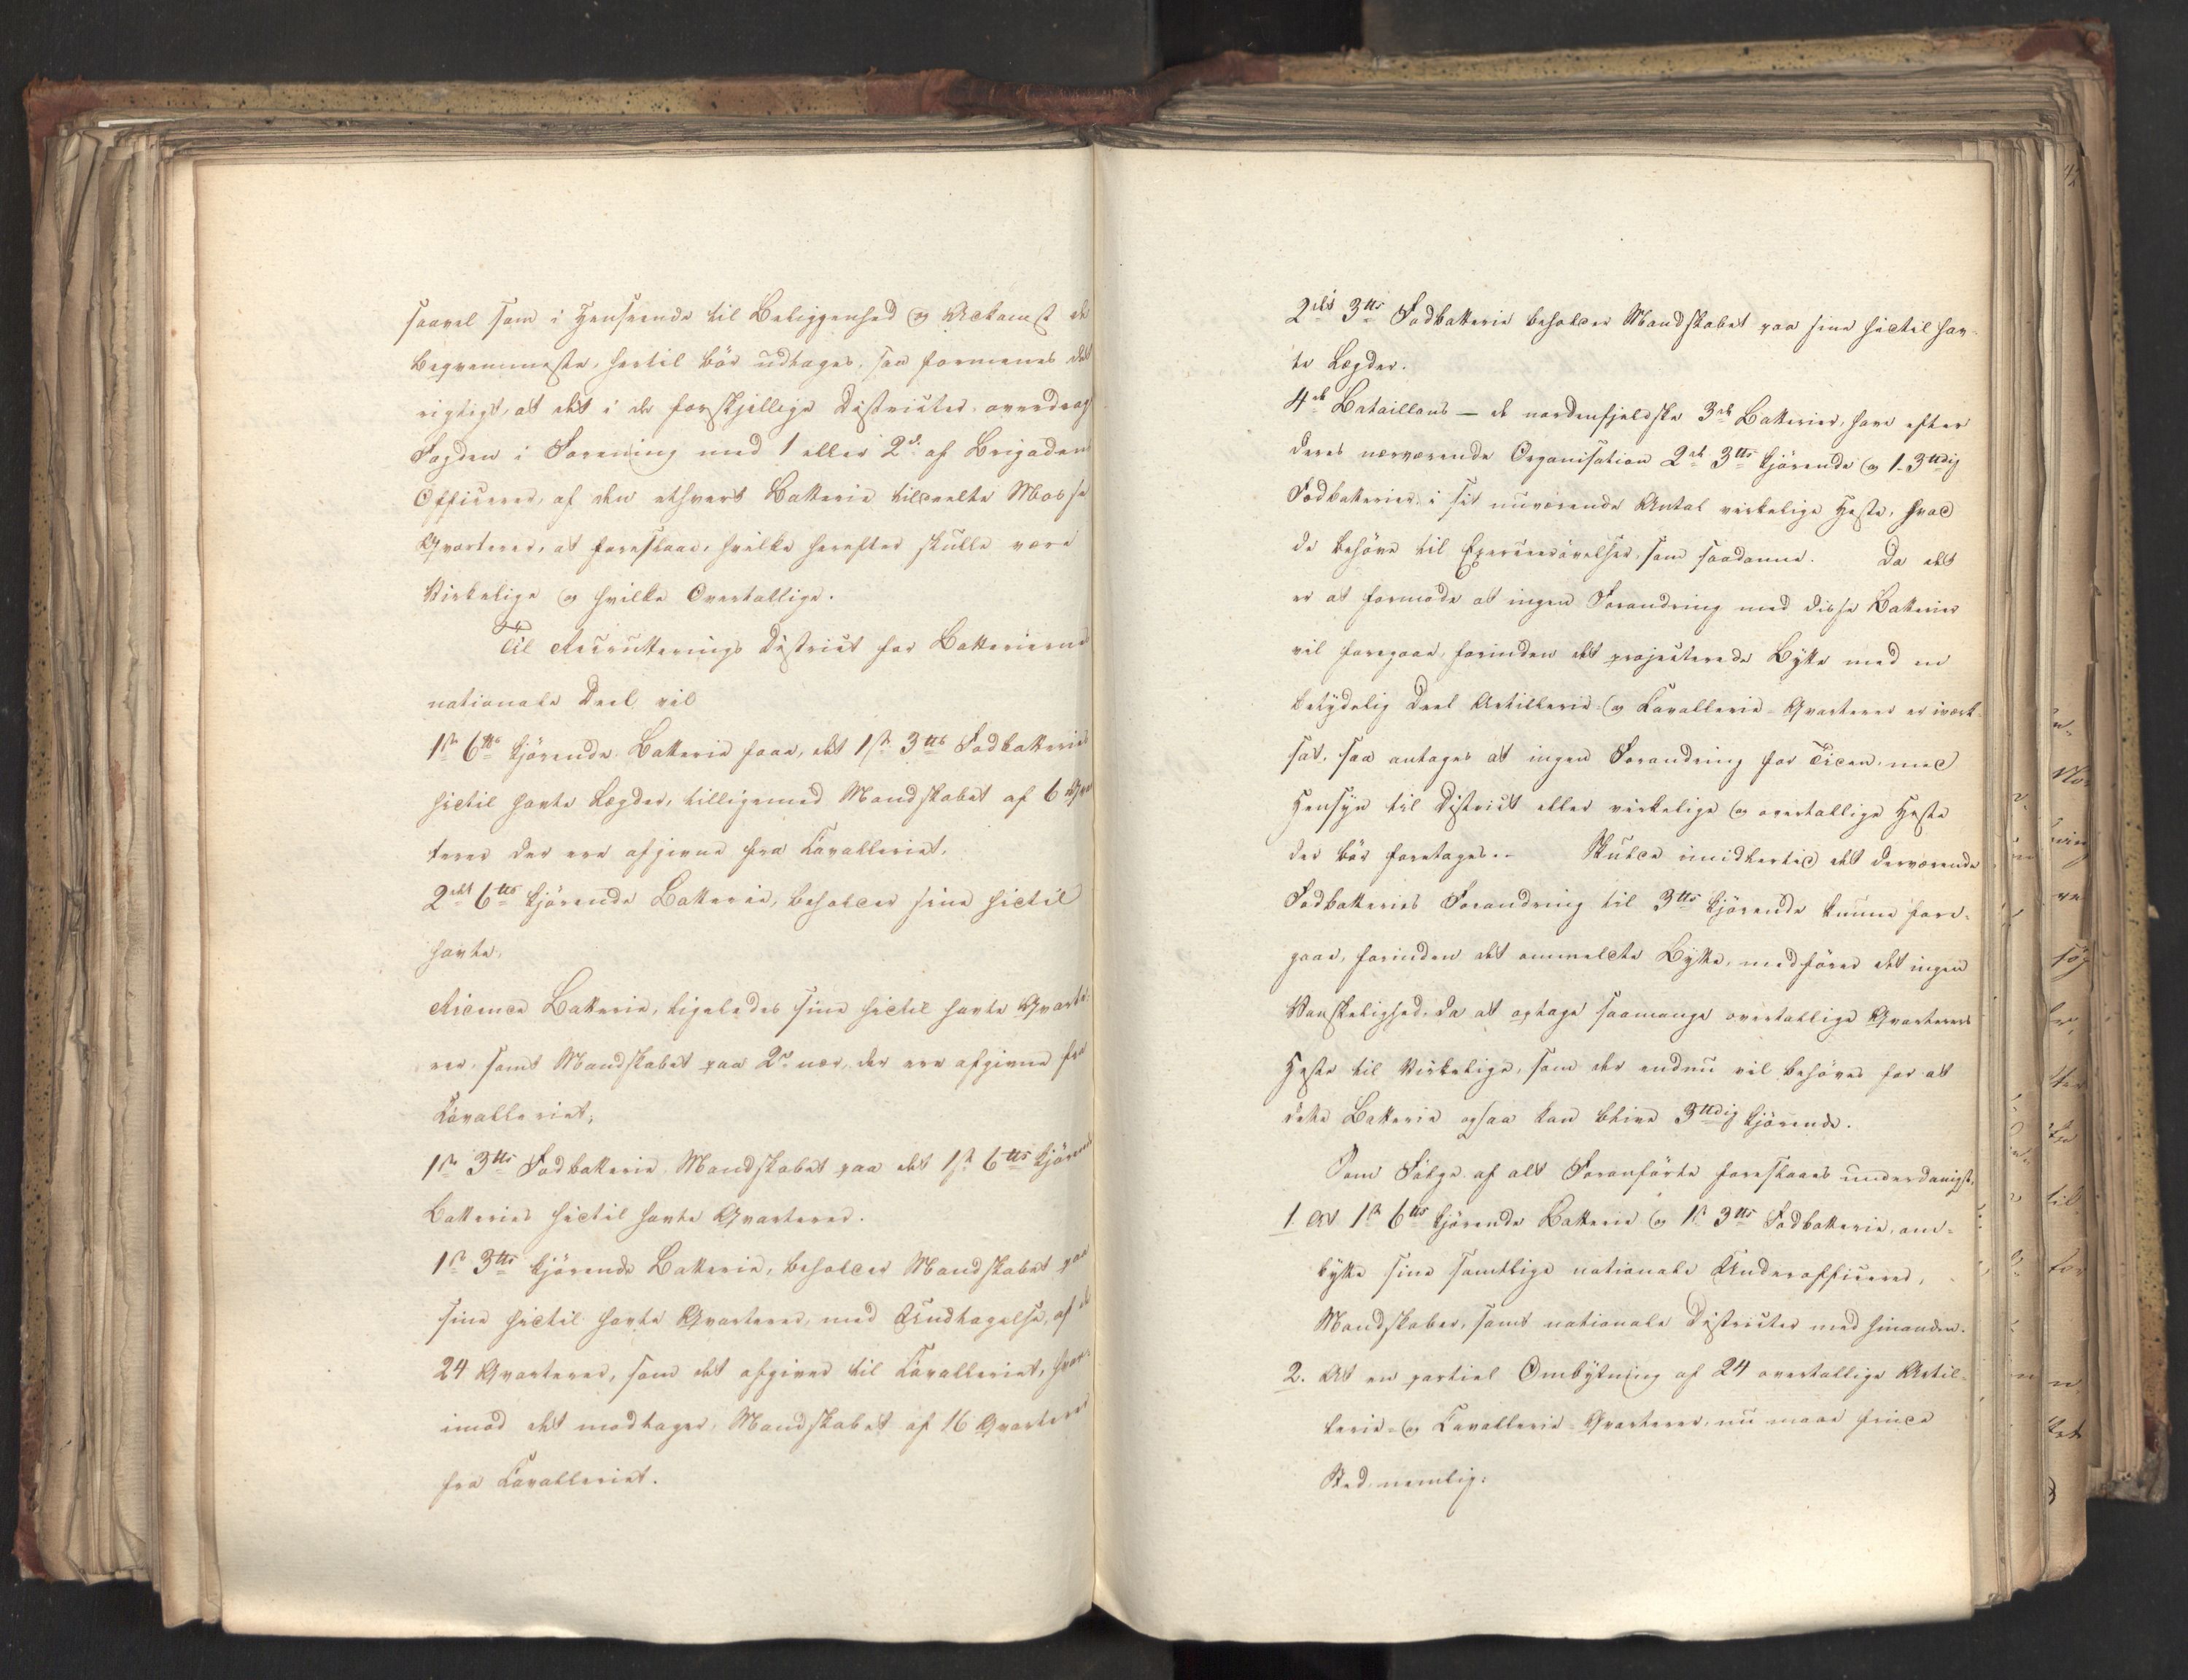 saavel som i Henseende til Beliggenhed og Adkomst de
beqvemmeste, hertil bör udtages, saa formenes det
rigtigst, at det i de forskjellige Districter overdrages
Fogden i Forening med 1 eller 2de af Brigadens
Officerer, af den ethvert Batterie tildeelte Masse
Qvarterer, at foreslaae, hvilke herefter skulle være
Virkelige og hvilke Overtallige.
Til Recrutterings District for Batteriernes
nationale Deel vil
1ste 6tts kjörende Batterie faae, det 1ste 3tts Fodbatteries
hidtil havte Lægder, tilligemed Mandskabet af 6 Qvar
terer der ere afgivne fra Cavalleriet.
2det 6tts kjörende Batterie, beholder sine hidtil
havte.
Ridende Batterie, ligeledes sine hidtil havte Qvarte-
rer, samt Mandskabet paa 2de nær, der ere afgivne fra
Cavalleriet,
1ste 3tts Fodbatterie Mandskabet paa det 1ste 6tts kjörende
Batteries hidtil havte Qvarterer.
1ste 3tts kjörende Batterie, beholder Mandskabet paa
sine hidtil havte Qvarterer, med Undtagelse, af de
24 Qvarterer, som det afgiver til Cavalleriet, hvor-
imod det modtager, Mandskabet af 16 Qvarterer
fra Cavalleriet.
2det 3tts Fodbatterie beholder Mandskabet paa sine hidtil hav-
te Lægder.
4de Bataillons — de nordenfjeldske 3de Batterier, have efter
deres nærværende Organisation 2de 3tts kjörende og 1 3ttdig
Fodbatterier i sit nuværende Antal virkelige Heste, hvad
de behöve til Exerceerövelser, som saadanne. Da det
er at formode at ingen Forandring med disse Batterier
vil foregaae, forinden det projecterede Bytte med en
betydelig Deel Artillerie- og Cavallerie-Qvarterer er iværk-
sat, saa antages at ingen Forandring for Tiden, med
Hensyn til District eller virkelige og overtallige Heste
der bör foretages.. Skulde imidlertid det derværende
Fodbatteries Forandring til 3tts kjörende kunne fore-
gaae, forinden det ommeldte Bytte, medförer det ingen
Vanskelighed, da at optage saamange overtallige Qvarterers
Heste til Virkelige, som der endnu vil behöves for at
dette Batterie ogsaa kan blive 3ttdig kjörende.
Som Fölge af alt Foranförte foreslaaes underdanigst,
1. At 1ste 6tts kjörende Batterie og 1ste 3tts Fodbatterie, om-
bytte sine samtlige nationale Underofficerer,
Mandskaber, samt nationale Districter med hinanden.
2. At en partiel Ombytning af 24 overtallige Artil-
lerie- og Cavallerie-Qvarterer, nu maae finde
Sted, nemlig: